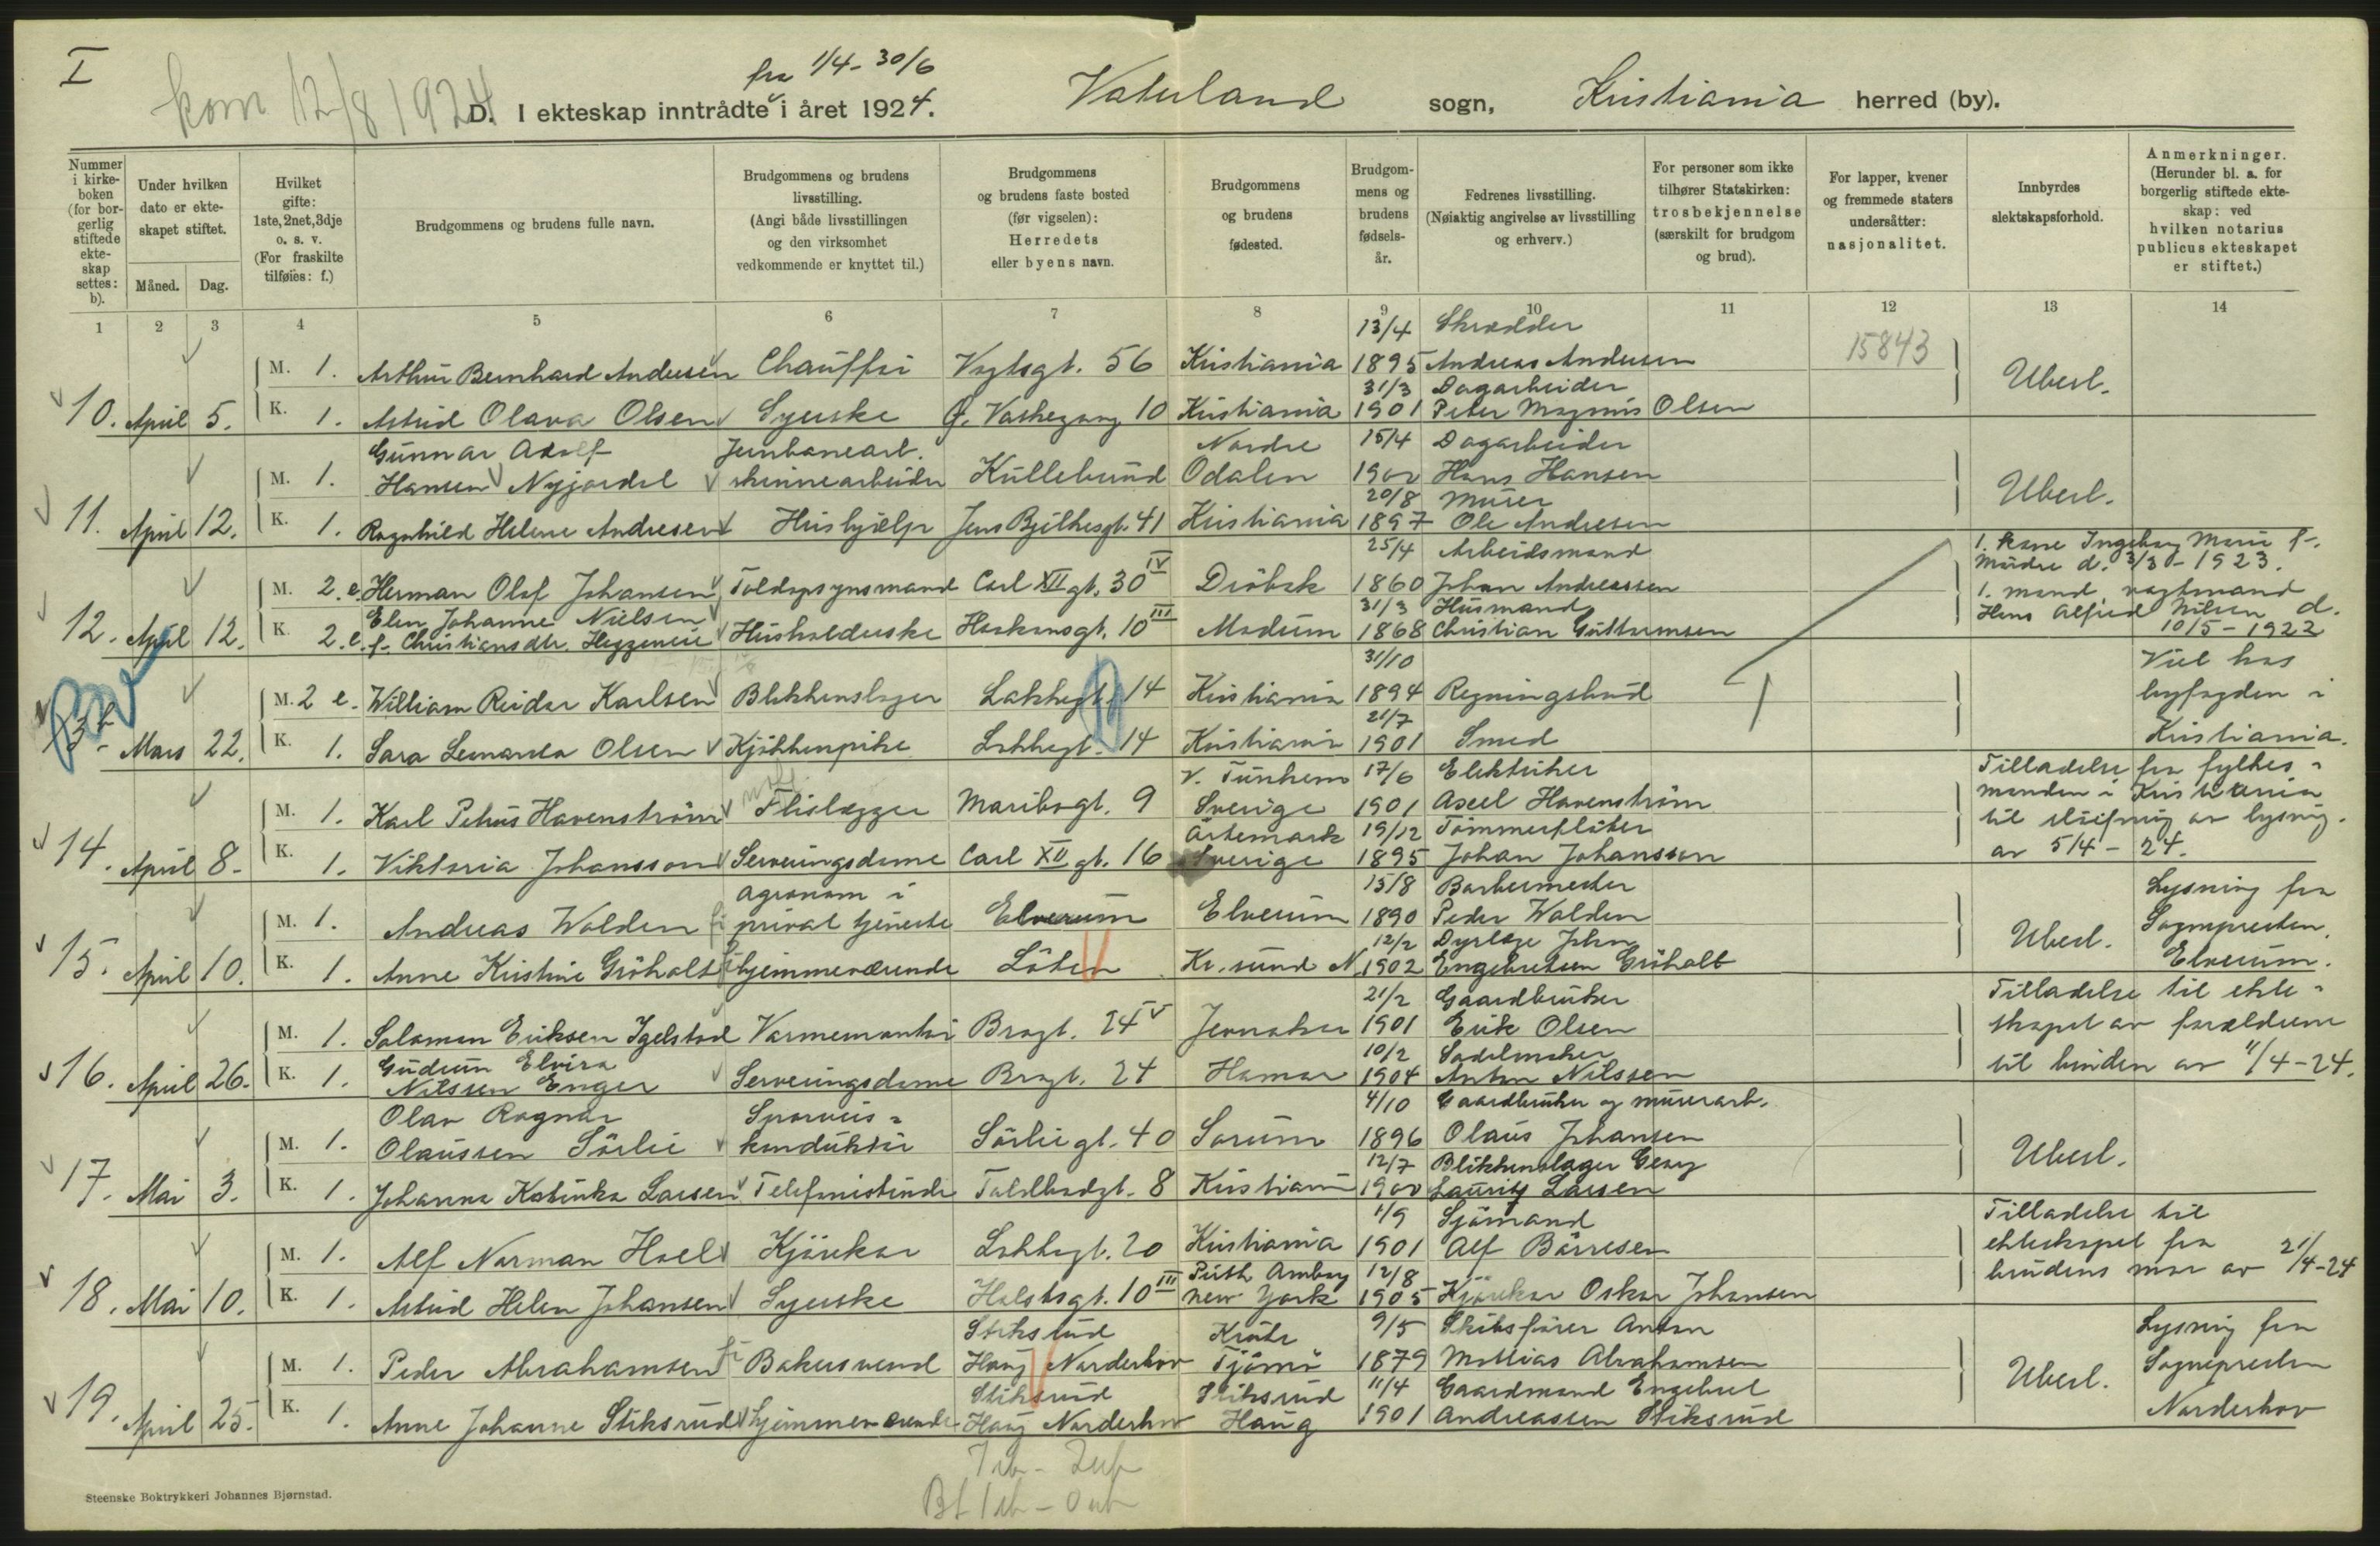 I
kom 12/8 1924
fra 1/4 - 30/6
D. I ekteskap inntrådte i året 1924.
Vaterland sogn, Kristiania herred (by).
Nummer i kirkeboken (for borgerlig stiftede ekteskap settes: b).
Under hvilken dato er ekteskapet stiftet.
Måned. Dag.
Hvilket gifte: 1ste, 2net, 3dje o. s. v. (For fraskilte tilføies: f.)
Brudgommens og brudens fulle navn.
Brudgommens og brudens livsstilling. (Angi både livsstillingen og den virksomhet vedkommende er knyttet til.)
Brudgommens og brudens faste bosted (før vigselen): Herredets eller byens navn.
Brudgommens og brudens fødested.
Brudgommens og brudens fødselsår.
Fedrenes livsstilling. (Nøiaktig angivelse av livsstilling og erhverv.)
For personer som ikke tilhører Statskirken: trosbekjennelse (særskilt for brudgom og brud).
For lapper, kvener og fremmede staters undersåtter: nasjonalitet.
Innbyrdes slektskapsforhold.
Anmerkninger. (Herunder bl. a. for borgerlig stiftede ekteskap: ved hvilken notarius publicus ekteskapet er stiftet.)
1 2 3 4 5 6 7 8 9 10 11 12 13 14
15843
13/4 Skrædder
M. 1. Arthur Bernhard Andersen Chauffør Vogtsgt. 56 Kristiania 1895 Andreas Andersen
31/3 Dagarbeider
10. April 5. K. 1. Astrid Olava Olsen Syerske G. Vaskegang 10 Kristiania 1901 Peter Magnus Olsen Ubesl.
Gunnar Adolf Jernbanearb. Nordre 15/4 Dagarbeider
M. 1. Hansen Nyjordet skinnearbeider Kullebund Odalen 1900 Hans Hansen
20/8 Murer
11. April 12. K. 1. Ragnhild Helene Andresen Hushjælp Jens Bjelkesgt. 41 Kristiania 1897 Ole Andresen Ubesl.
25/4 Arbeidsmand
M. 2. e. Herman Olaf Johansen Toldopsynsmand Carl XII gt. 30 IV Dröbak 1860 Johan Andreassen
Elen Johanne Nielsen 31/3 Husmand
12. April 12. K. 2. e. f. Christiansdtr. Heggeneie Husholderske Haakonsgt. 10 III Modum 1868 Christian Guttormsen
1. kone Ingeborg Marie f.
Mudre d. 3/3 - 1923.
1. mand, vagtmand
Hans Alfred Nilsen d.
10/5 - 1922
31/10
M. 2 e. William Reidar Karlsen Blikkenslager Lakkegt. 14 Kristiania 1894 Regningsbud
21/7
13 b Mars 22. K. 1. Sara Lenarda Olsen Kjökkenpike Lakkegt. 14 Kristiania 1901 Smed
Viel hos
byfogden i
Kristiania.
V. Tunhem 17/6 Elektriker
M. 1. Karl Petrus Havenström Flislægger Maribogt. 9 Sverige 1901 Axel Havenström
Ärtemark 19/12 Tömmerflöter
14. April 8. K. 1. Viktoria Johansson Serveringsdame Carl XII gt. 16 Sverige 1895 Johan Johansson
Tilladelse fra fylkes-
manden i Kristiania
til sløifning av lysnig.
av 5/4 - 24.
agronom i 15/8 Barbermester
M. 1. Andreas Wolden privat tjeneste Elverum Elverum 1890 Peder Wolden
12/2 Dyrlæge John
15. April 10. K. 1. Anne Kristine Gröholt hjemmeværende Löten Kr.sund N. 1902 Engebretsen Gröholt Ubesl.
Lysning fra
Sognepresten,
Elverum.
21/2 Gaardbruker
M. 1. Salomon Eriksen Igelstad Varmemontör Brogt. 24 IV Jevnaker 1901 Erik Olsen
Gudrun Elvira 10/2 Sadelmaker
16. April 26. K. 1. Nilssen Enger Serveringsdame Brogt. 24 Hamar 1904 Anton Nilssen
Tilladelse til ekte-
skapet av forældrene
til bruden av 11/4-24.
Olav Ragnar Sporveis- 4/10 Gaardbruker og murerarb.
M. 1. Olaussen Sörlie konduktör Sörliegt. 40 Sørum 1896 Olaus Johansen
12/7 Blikkenslager Georg
17. Mai 3. K. 1. Johanna Katinka Larsen Telefonistinde Toldbodgt. 8 Kristiania 1900 Lauritz Larsen Ubesl.
1/9 Sjömand
M. 1. Alf Norman Hoel Kjörekar Lakkegt. 20 Kristiania 1901 Alf Börresen
Perth Amboy 12/8
18. Mai 10. K. 1. Astrid Helen Johansen Syerske Holstsgt. 10 III New York 1905 Kjörekar Oskar Johansen
Tilladelse til
ekteskapet fra
brudens mor av 21/4-24
Stiksrud 9/5 Skibsfører Anton
M. 1. Peder Abrahamsen Bakersvend Haug Norderhov Tjömö 1879 Mattias Abrahamsen
Stiksrud Stiksrud 11/4 Gaardmand Engebret
19. April 25. K. 1. Anne Johanne Stiksrud hjemmeværende Haug Norderhov Haug 1901 Andreassen Stiksrud Ubesl.
Lysning fra
Sognepresten
Norderhov
Steenske Boktrykkeri Johannes Bjørnstad.